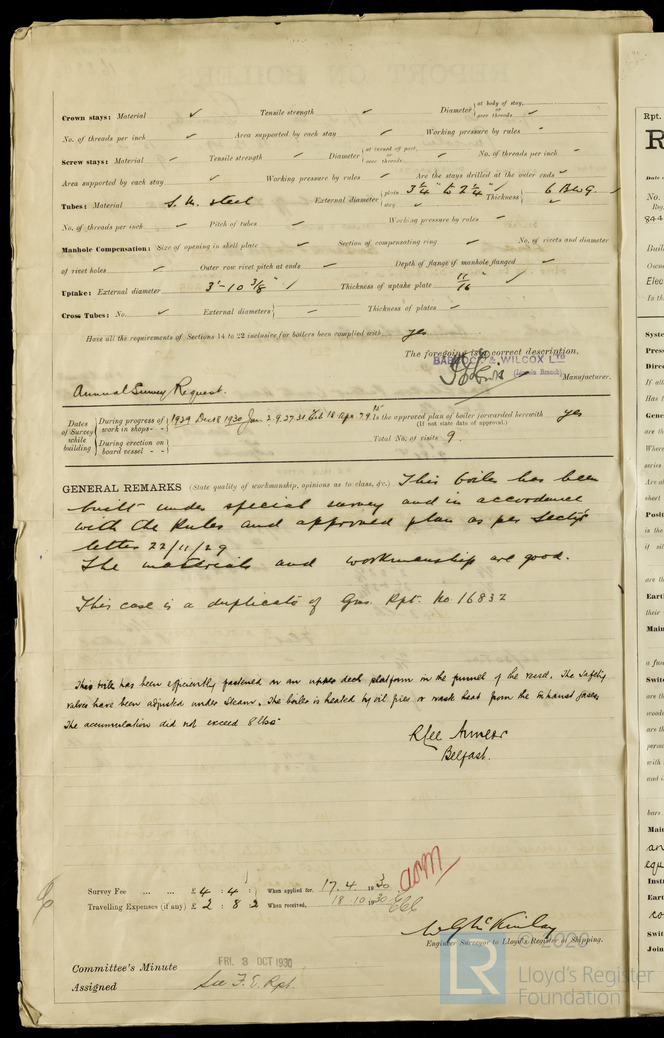 Crown stays: Material ✓ Tensile strength ✓ Diameter { at body of stay, or over threads ✓
No. of threads per inch ✓ Area supported by each stay ✓ Working pressure by rules ✓
Screw stays: Material ✓ Tensile strength ✓ Diameter { at turned off part, or over threads ✓ No. of threads per inch ✓
Area supported by each stay ✓ Working pressure by rules ✓ Are the stays drilled at the outer ends ✓
Tubes: Material S. M. steel External diameter { plain 3 1/4" to 2 1/4" ✓ stay ✓ Thickness { 6 B.W.G. ✓
No. of threads per inch ✓ Pitch of tubes ✓ Working pressure by rules ✓
Manhole Compensation: Size of opening in shell plate ✓ Section of compensating ring ✓ No. of rivets and diameter
of rivet holes ✓ Outer row rivet pitch at ends ✓ Depth of flange if manhole flanged ✓
Uptake: External diameter 3'-10 3/8" ✓ Thickness of uptake plate 11/16" ✓
Cross Tubes: No. ✓ External diameters { ✓ Thickness of plates ✓
Have all the requirements of Sections 14 to 22 inclusive for boilers been complied with yes
The foregoing is a correct description,
BABCOCK & WILCOX LTD
Manufacturer.
Annual Survey Request.
Dates of Survey while building { During progress of work in shops - - 1929 Dec 18 1930 Jan 2. 9. 27. 31. Feb 18 Apr. 7. 9. 15 Is the approved plan of boiler forwarded herewith yes
(If not state date of approval.)
During erection on board vessel - - Total No. of visits 9.
GENERAL REMARKS (State quality of workmanship, opinions as to class, &c.) This boiler has been
built under special survey and in accordance
with the Rules and approved plan as per Sectys
letter 22/11/29
The materials and workmanship are good.
This case is a duplicate of Gns. Rpt. No. 16832
This boiler has been efficiently fastened on an upper deck platform in the funnel of the vessel. The safety
valves have been adjusted under steam. The boiler is heated by oil fires or waste heat from the exhaust gases.
The accumulation did not exceed 8 lbs.
Belfast.
Survey Fee ... ... £ 4 : 4 : When applied for, 17. 4. 1930
Travelling Expenses (if any) £ 2 : 8 : 2 When received, 18.10.1930
Engineer Surveyor to Lloyd's Register of Shipping.
Committee's Minute FRI. 3 OCT 1930
Assigned See F.E. Rpt.
© 2020
LR Lloyd's Register
Foundation
Rpt.